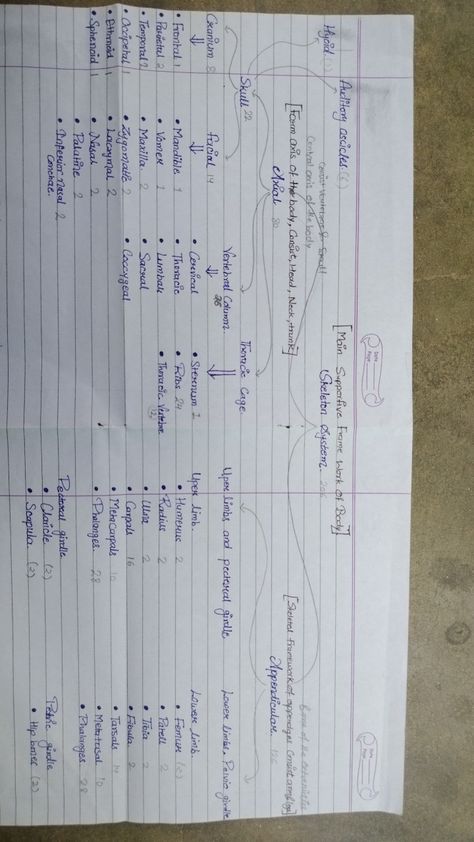 Date
Page
Date
Page
[Main Supportive Frame Work of Body]
Skeleton System 206
Axial 80
[Form axis of the body, Consist, Head, Neck, trunk]
Central axis of the body
Appendicular 126
[Skeletal framework of appendages
Hyoid (1)
Auditory oscicles (6)
Skull 22
Vertebral Column. 26
Thoracic Cage.
Upper limbs and pectoral girdle
Lower limbs, Pelvic girdle
Cranium 8
• Frontal 1
• Parietal 2
• Temporal 2
• Occipetal 1
• Ethnoid 1
• Sphenoid 1
Facial 14
• Mandible 1
• Vomer 1
• Maxilla 2
• Zygomatic 2
• Lacrymal 2
• Nasal 2
• Palatine 2
• Inferior Nasal 2
Conchae.
• Cervical
• Thoracic
• Lumbar
• Sacral
• Coccygeal
• Sternum 1
• Ribs 24
• Thoracic Vertebrae
12
Upper limb.
• Humerus 2
• Radius 2
• Ulna 2
• Carpals 16
• Metacarpals 10
• Phalanges 28
Pectoral girdle
• Clavicle (2)
• Scapula (2)
Lower limb.
• Femur (2)
• Patell 2
• Tibia 2
• Fibula 2
• Tarsals 14
• Metatarsal 10
• Phalanges 28
Pelvic girdle
• Hip bones (2)